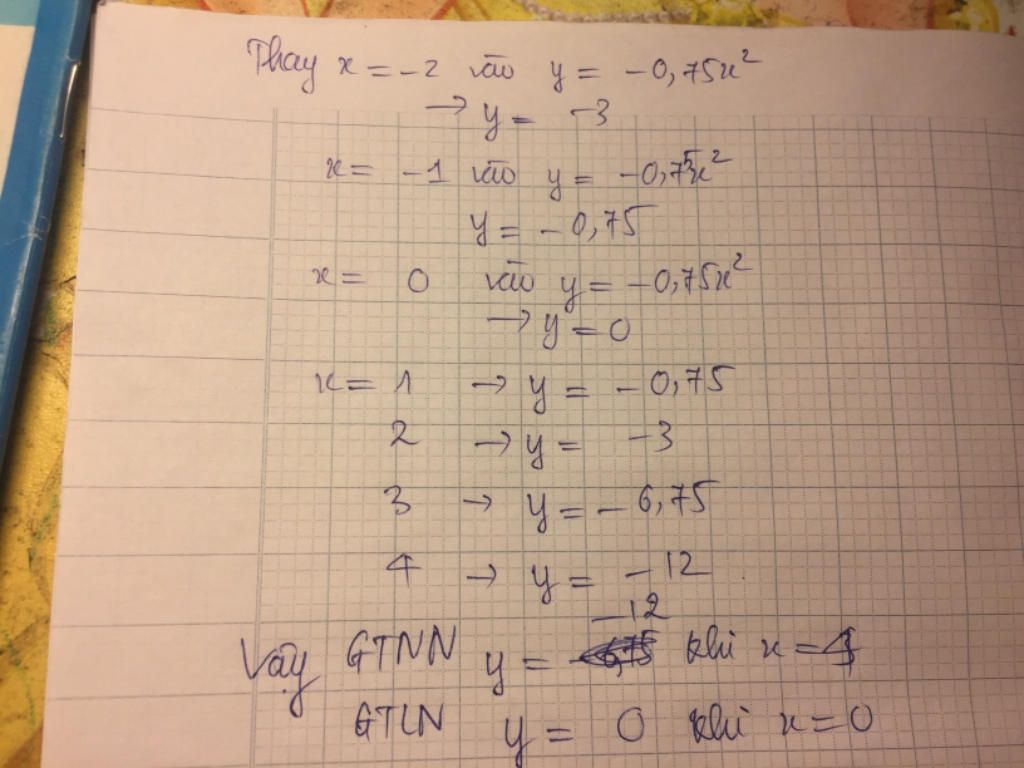 Thay x = -2 vào y = -0,75x²
→ y = -3
x = -1 vào y = -0,75x²
y = -0,75
x = 0 vào y = -0,75x²
→ y = 0
x = 1 → y = -0,75
2 → y = -3
3 → y = -6,75
4 → y = -12
Vậy GTNN y = -12 khi x = 4
GTLN y = 0 khi x = 0